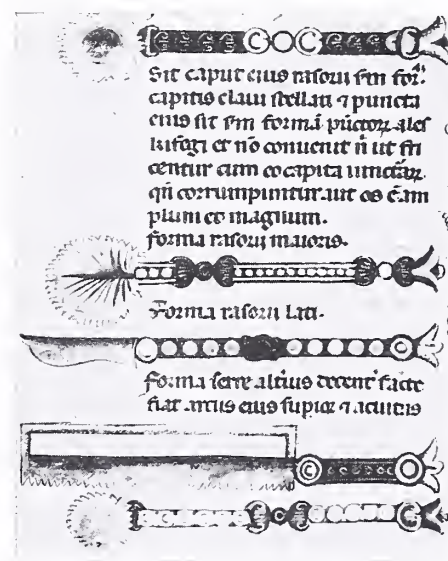 Sit caput eius rasorii scm for
capitis claui stellati ⁊ puncta
eius sit scm formã pũctorꝝ ales
kifegi et nõ conuenit ñ ut fri
centur cum eo capita
qñ corrumpuntur aut os ẽ am
plum eo magnum.
forma rasorij maioris.
Forma rasorij lati.
forma serre altius decent facte
fiat arcus eius supior ⁊ acuitas